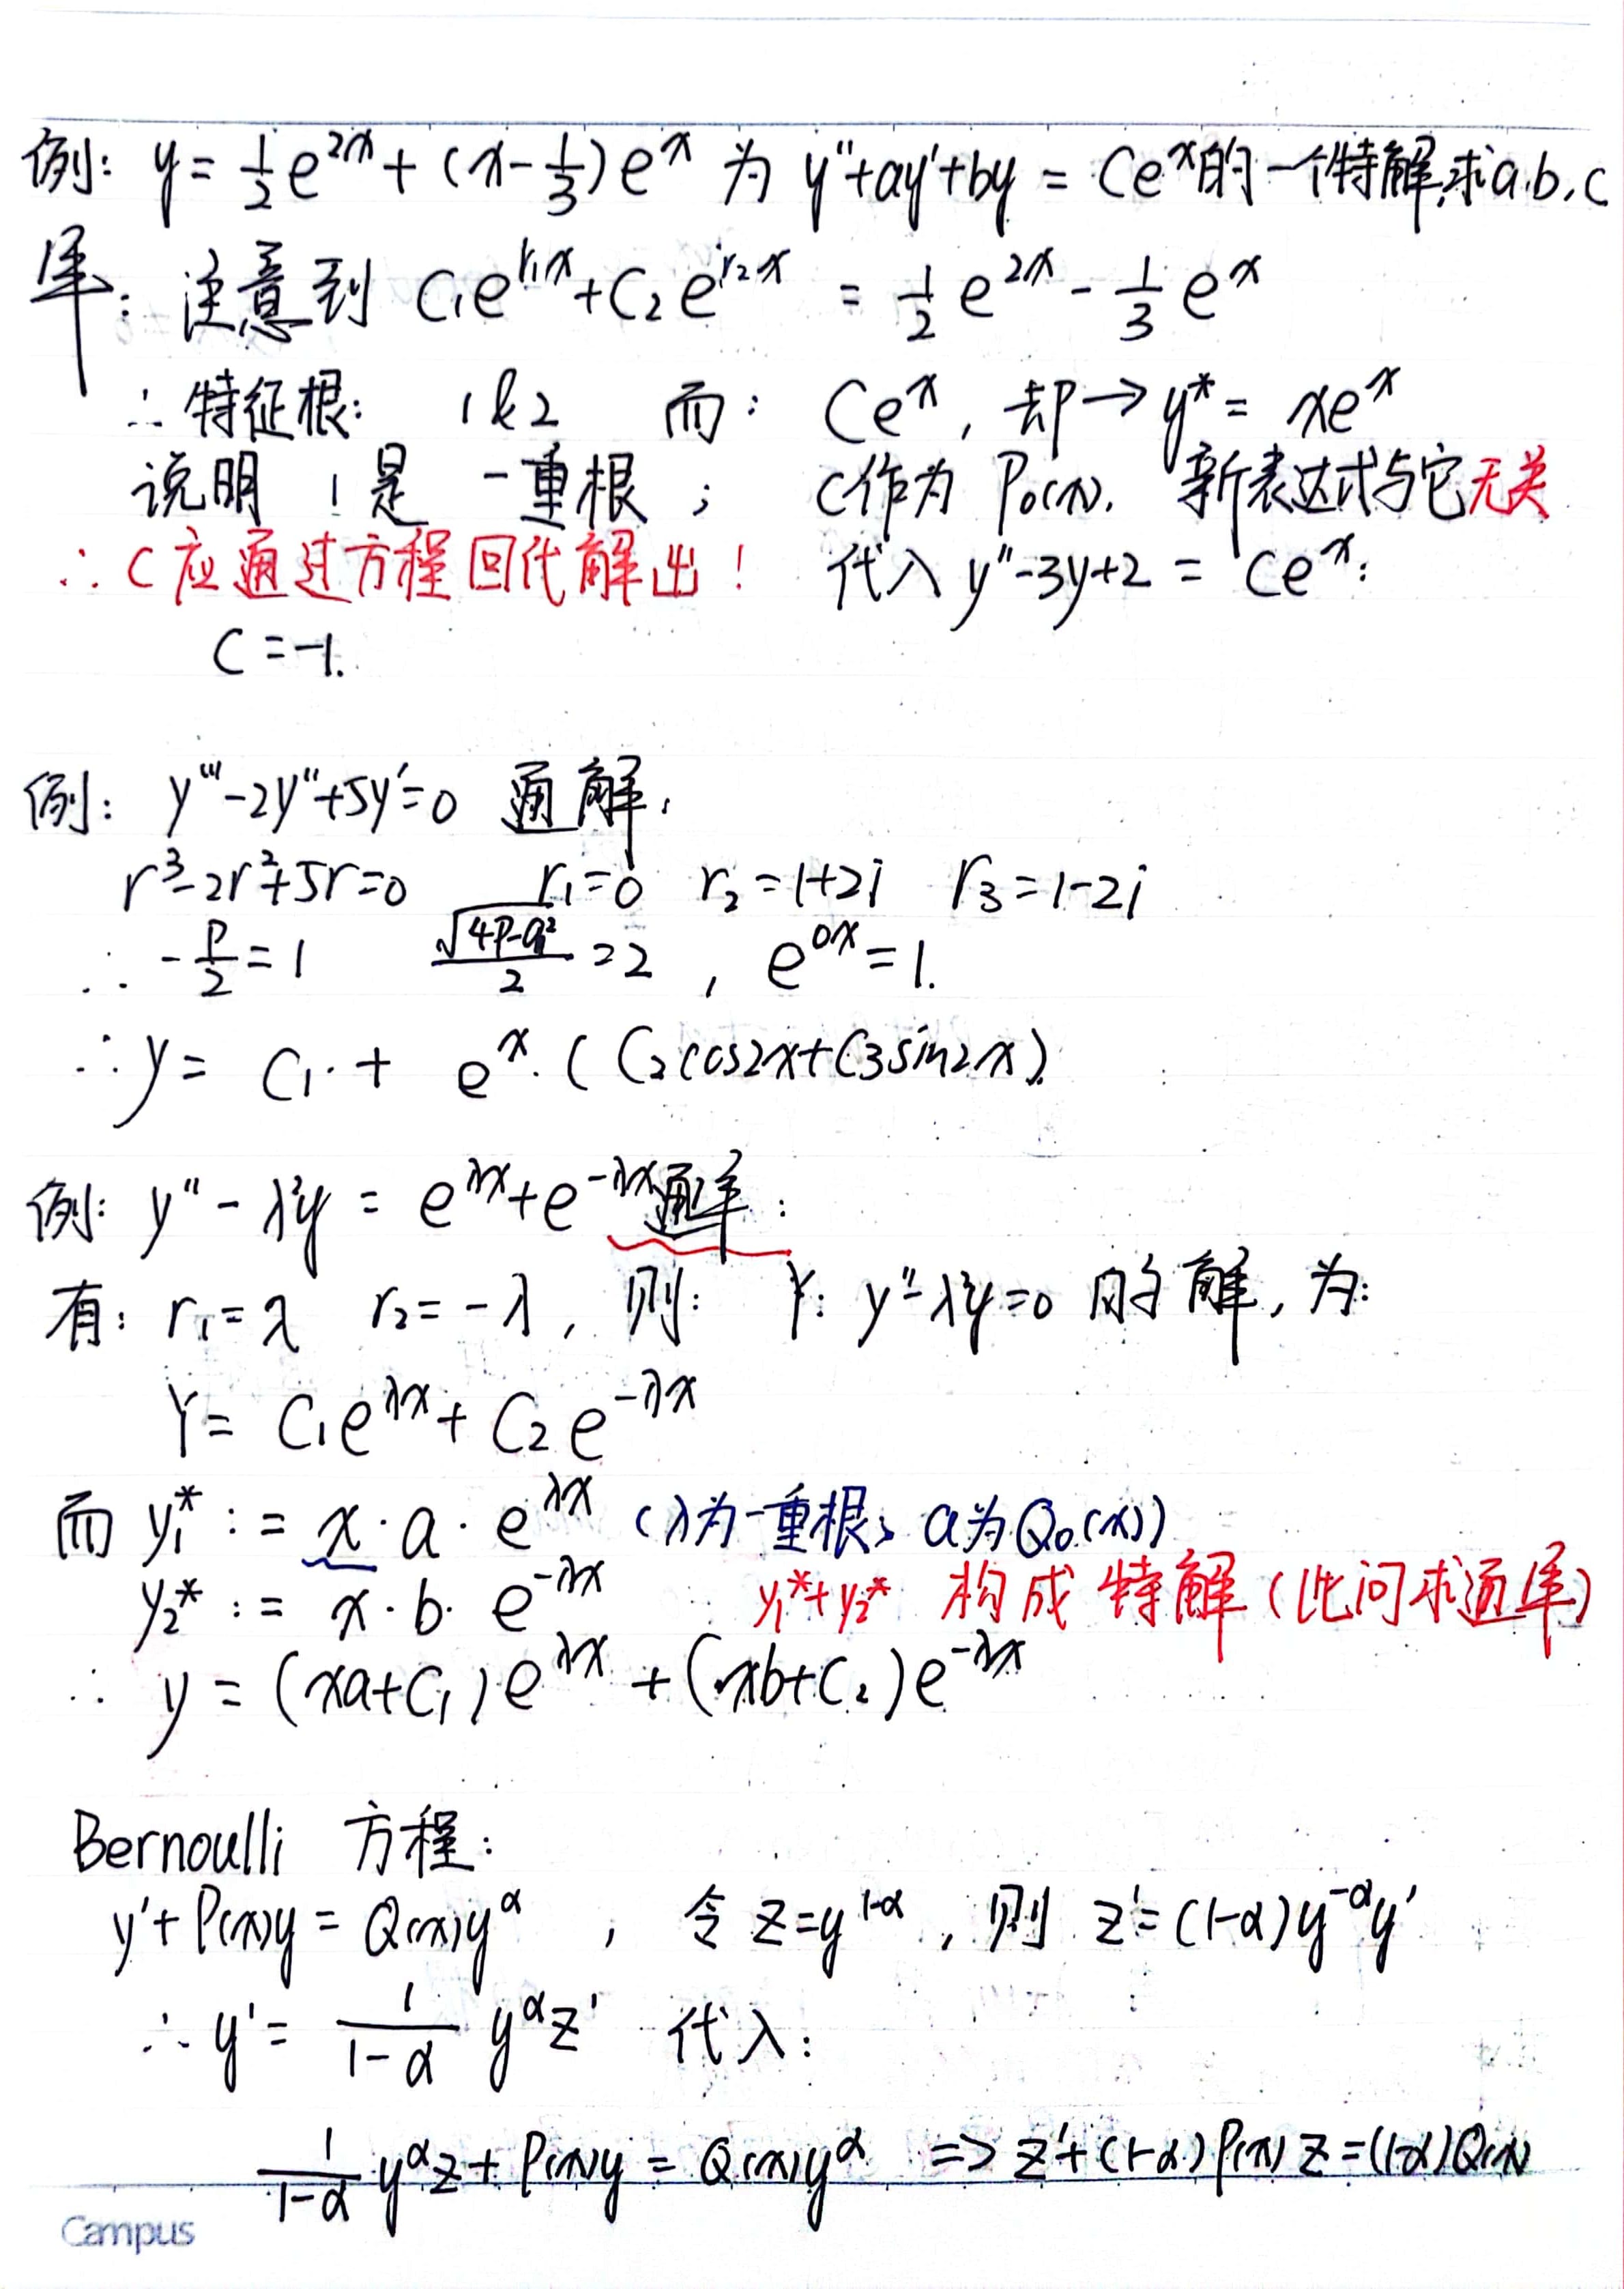 例: y = 1/2 e^{2x} + (x - 1/3) e^x 为 y''+ay'+by = Ce^x的一个特解,求a.b.c
解: 注意到 C₁e^{r₁x}+C₂e^{r₂x} = 1/2 e^{2x} - 1/3 e^x
∴ 特征根: 1&2 而: Ce^x, 却→ y* = xe^x
说明 1是 一重根; C作为 P₀(x). 新表达式与它无关
∴ C应通过方程回代解出! 代入 y''-3y+2 = Ce^x:
C = -1.
例: y'''-2y''+5y'=0 通解:
r³-2r²+5r=0 r₁=0 r₂=1+2i r₃=1-2i
∴ -P/2 = 1 √(4P-q²)/2 = 2 , e^{0x} = 1.
∴ y = C₁·+ e^x·(C₂cos2x+C₃sin2x)
例: y''-λ²y = e^{λx}+e^{-λx}通解:
有: r₁=λ r₂=-λ, 则: Y: y''-λ²y=0 的解, 为:
Y = C₁e^{λx} + C₂e^{-λx}
而 y₁* := x·a·e^{λx} (λ为一重根; a为Q₀(x))
y₂* := x·b·e^{-λx} y₁*+y₂* 构成特解(此问求通解)
∴ y = (xa+C₁)e^{λx} + (xb+C₂)e^{-λx}
Bernoulli 方程:
y'+P(x)y = Q(x)y^α , 令 z=y^{1-α}, 则 z'=(1-α)y^{-α}y'
∴ y' = 1/(1-α) y^α z' 代入:
1/(1-α) y^α z + P(x)y = Q(x)y^α => z'+(1-α)P(x)z=(1-α)Q(x)
Campus